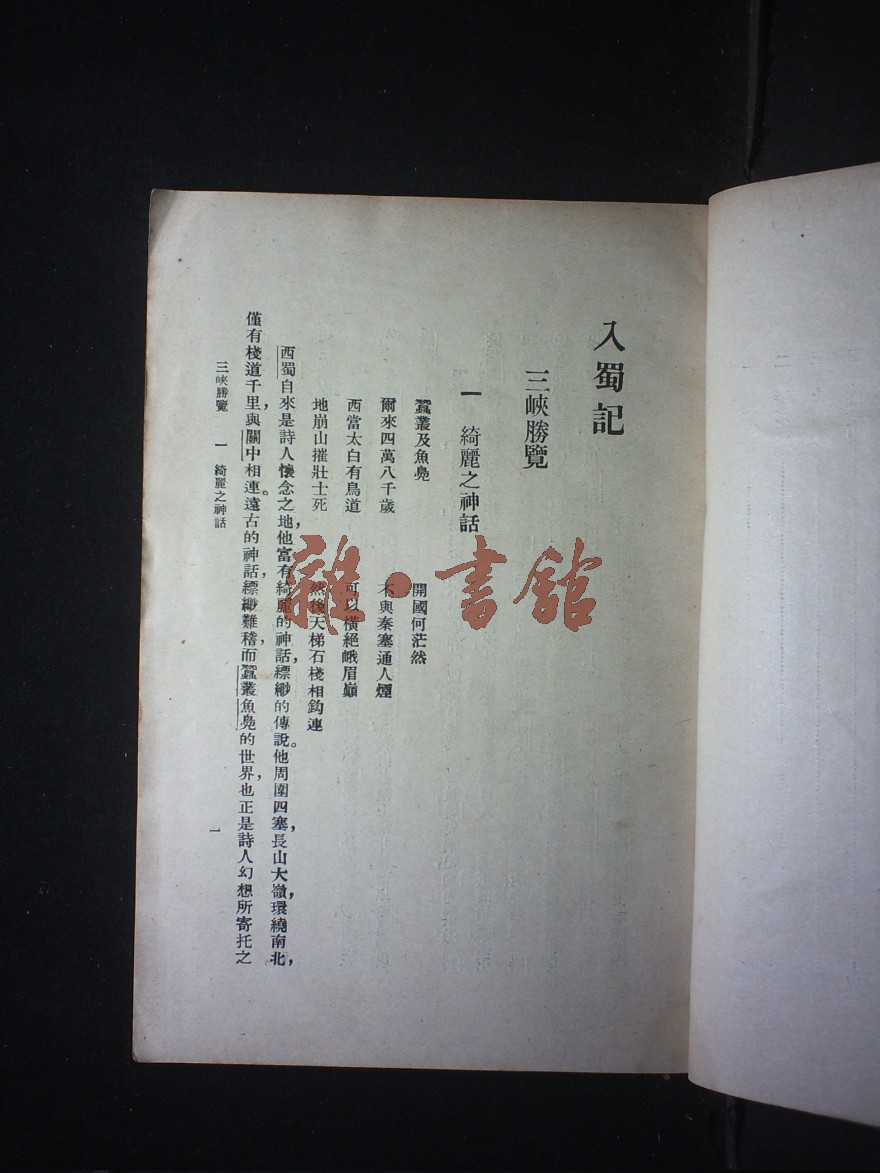 入蜀記
三峽勝覽
一 綺麗之神話
蠶叢及魚鳧 開國何茫然
爾來四萬八千歲 不與秦塞通人煙
西當太白有鳥道 可以橫絕峨眉巔
地崩山摧壯士死 然後天梯石棧相鈎連
西蜀自來是詩人懷念之地，他富有綺麗的神話，縹緲的傳說。他周圍四塞，長山大嶺，環繞南北，
僅有棧道千里，與關中相連。遠古的神話，縹緲難稽，而蠶叢魚鳧的世界，也正是詩人幻想所寄托之
三峽勝覽 一 綺麗之神話
一
雜·書館